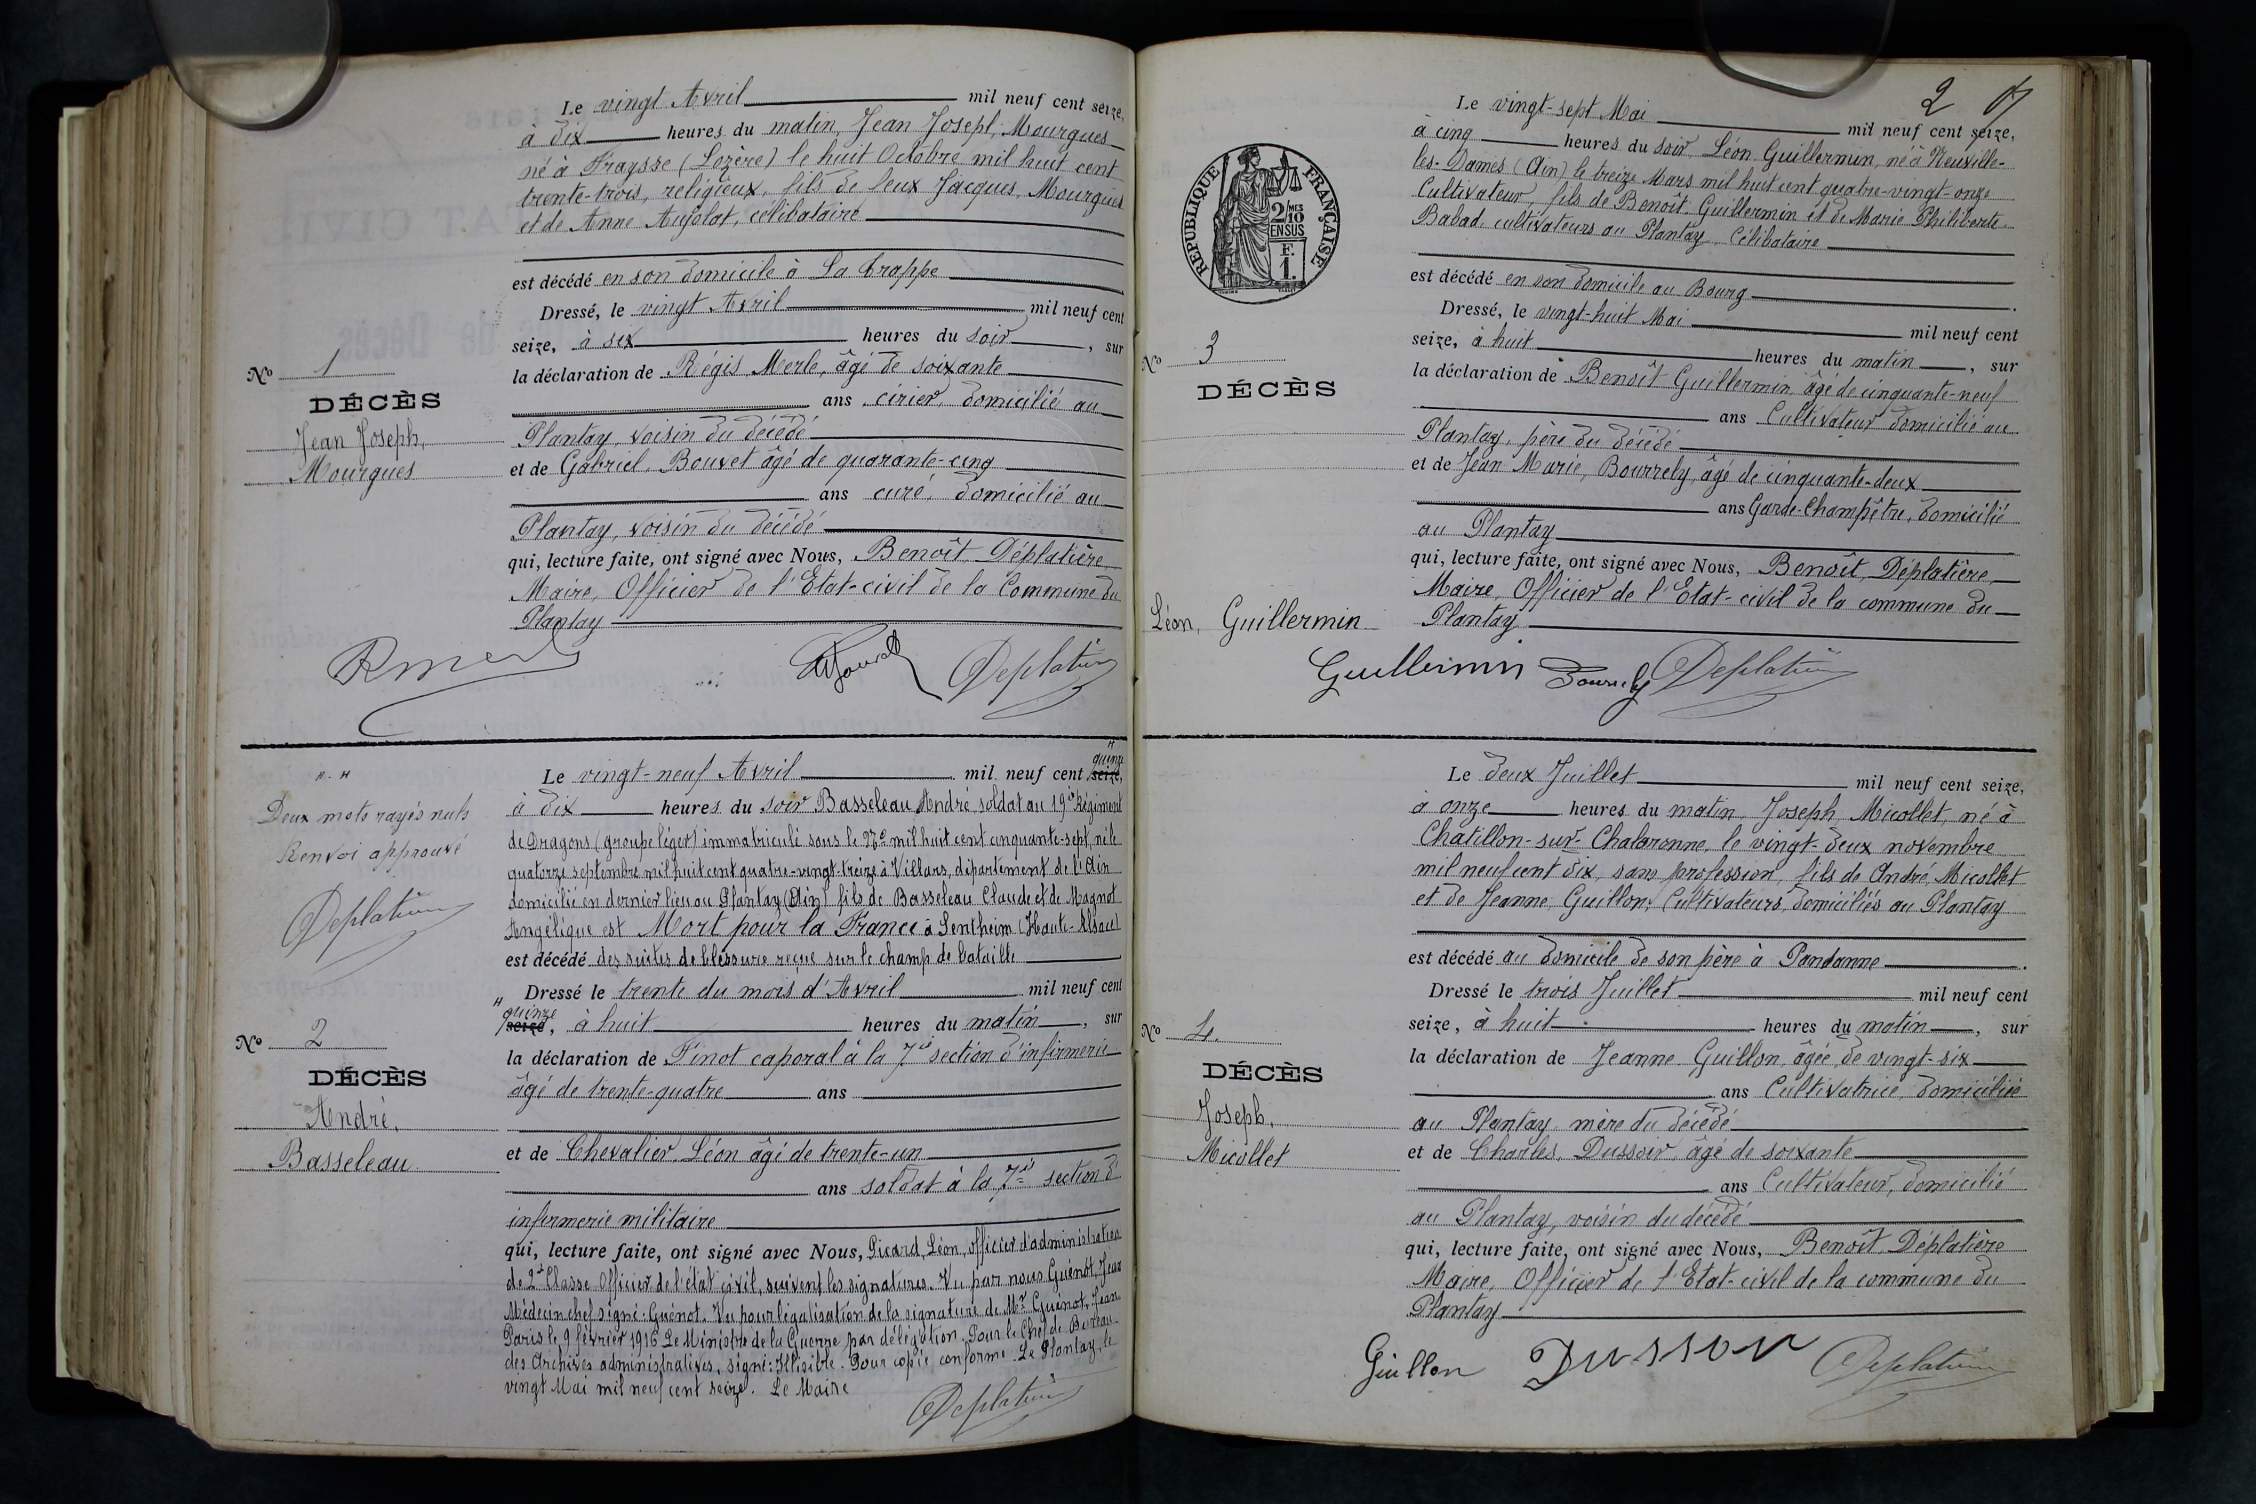 Le vingt Avril mil neuf cent seize,
à dix heures du matin, Jean Joseph, Mourgues
né à Fraysse (Lozère) le huit Octobre mil huit cent
trente-trois, religieux, fils de feux Jacques, Mourgues
et de Anne célibataire
est décédé en son domicile à La Trappe
Dressé, le vingt Avril mil neuf cent
seize, à six heures du soir, sur
la déclaration de Régis, Merle, âgé de soixante
ans cirier, domicilié au
Plantay, voisin du décédé
et de Gabriel, Bouvet âgé de quarante-cinq
ans curé, domicilié au
Plantay, voisin du décédé
qui, lecture faite, ont signé avec Nous, Benoît, Déplatière,
Maire, Officier de l'Etat-civil de la Commune du
Plantay
Nº 1
DÉCÈS
Jean Joseph,
Mourgues
Déplatière
Le vingt-neuf Avril mil neuf cent seize, " quinze
à dix heures du soir Basseleau André, soldat au 19e Régiment
de Dragons (groupe léger) immatriculé sous le Nº mil huit cent cinquante-sept, né le
quatorze septembre mil huit cent quatre-vingt-treize à Villars, département de l'Ain
domicilié en dernier lieu au Plantay (Ain) fils de Basseleau Claude et de Magnot
Angélique est Mort pour la France à Sentheim (Haute-Alsace)
est décédé des suites de blessure reçue sur le champ de bataille
Dressé le trente du mois d'Avril mil neuf cent
" quinze
seize, à huit heures du matin, sur
la déclaration de Finot caporal à la 7e section d'infirmerie
âgé de trente-quatre ans
et de Chevalier, Léon âgé de trente-un
ans soldat à la 7e section d'
infirmerie militaire
qui, lecture faite, ont signé avec Nous, Picard, Léon, officier d'administration
de 2e Classe Officier de l'état civil, suivent les signatures. Vu par nous Guénot, Jean
Médecin chef signé: Guénot. Vu pour légalisation de la signature de Mr Guénot, Jean
Paris le 9 février 1916 Le Ministre de la Guerre par délégation. Pour le Chef de Bureau
des Archives administratives, signé: Illisible. Pour copie conforme. Le Plantay, le
vingt Mai mil neuf cent seize. Le Maire
Déplatière
" "
Deux mots rayés nuls
Renvoi approuvé
Déplatière
Nº 2
DÉCÈS
André,
Basseleau
2
Le vingt-sept Mai mil neuf cent seize,
à cinq heures du soir, Léon, Guillermin, né à Neuville-
les-Dames (Ain) le treize Mars mil huit cent quatre-vingt-onze
Cultivateur, fils de Benoît, Guillermin et de Marie Philiberte
Babad, cultivateurs au Plantay, Célibataire
est décédé en son domicile au Bourg
Dressé, le vingt-huit Mai mil neuf cent
seize, à huit heures du matin, sur
la déclaration de Benoît Guillermin, âgé de cinquante-neuf
ans Cultivateur domicilié au
Plantay, père du décédé
et de Jean Marie, Bourrely, âgé de cinquante-deux
ans Garde-Champêtre, domicilié
au Plantay
qui, lecture faite, ont signé avec Nous, Benoît, Déplatière,
Maire, Officier de l'Etat-civil de la commune du
Plantay
RÉPUBLIQUE FRANÇAISE
2/10 MES
EN SUS
F.
1.
Nº 3
DÉCÈS
Léon, Guillermin
Guillermin Bourrely Déplatière
Le deux Juillet mil neuf cent seize,
à onze heures du matin, Joseph, Micollet, né à
Chatillon-sur-Chalaronne, le vingt-deux novembre
mil neuf cent dix, sans profession, fils de André, Micollet
et de Jeanne, Guillon, Cultivateurs, domiciliés au Plantay
est décédé au domicile de son père à Pandanne
Dressé le trois Juillet mil neuf cent
seize, à huit heures du matin, sur
la déclaration de Jeanne Guillon, âgée de vingt-six
ans Cultivatrice, domiciliée
au Plantay, mère du décédé
et de Charles, Dussoir, âgé de soixante
ans Cultivateur, domicilié
au Plantay, voisin du décédé
qui, lecture faite, ont signé avec Nous, Benoît, Déplatière
Maire, Officier de l'Etat-civil de la commune du
Plantay
Nº 4.
DÉCÈS
Joseph,
Micollet
Guillon Déplatière